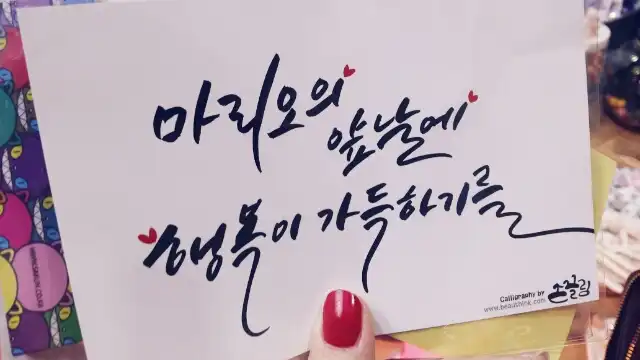 마리오의
앞날에
행복이 가득하기를
Calligraphy by
손끌림
www.beautihink.com